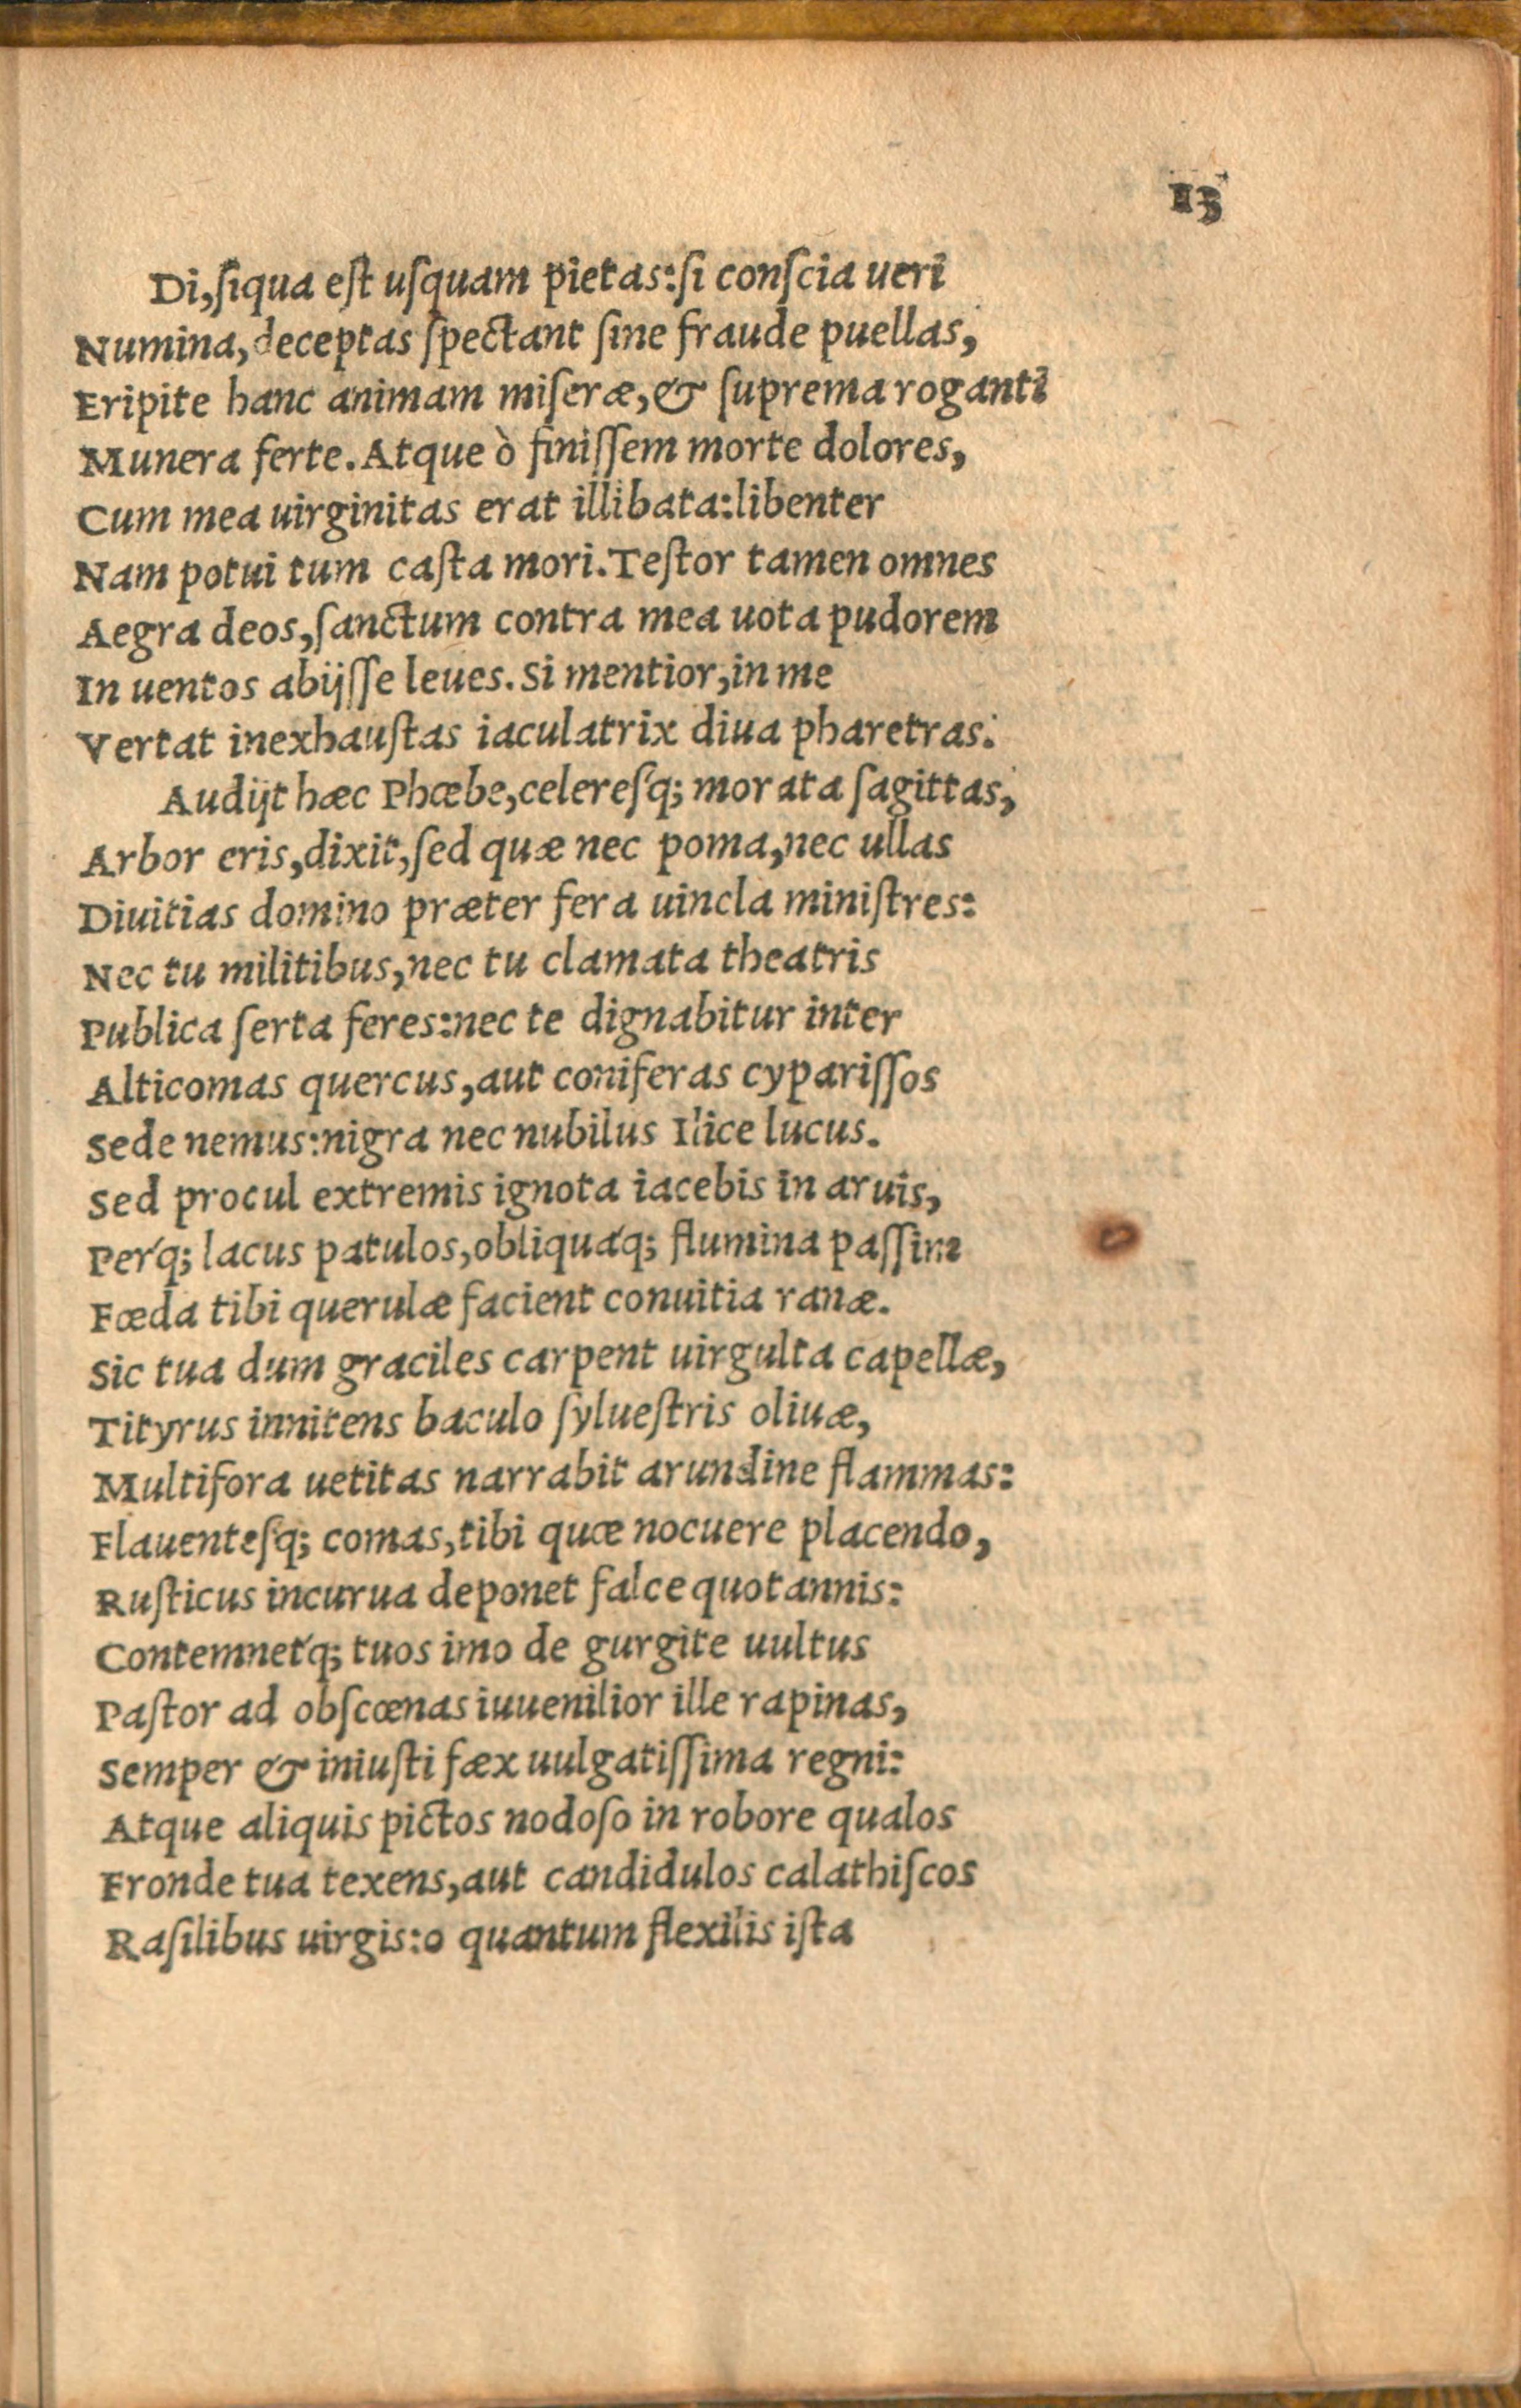 13
Di,ſiqua eſt uſquam pietas:ſi conſcia ueri
Numina,deceptas ſpectant ſine fraude puellas,
Eripite hanc animam miſeræ,& ſuprema roganti
Munera ferte.Atque ò finiſſem morte dolores,
Cum mea uirginitas erat illibata:libenter
Nam potui tum caſta mori.Teſtor tamen omnes
Aegra deos,ſanctum contra mea uota pudorem
In uentos abijſſe leues.Si mentior,in me
Vertat inexhauſtas iaculatrix diua pharetras.
Audijt hæc Phœbe,celereſq́; morata ſagittas,
Arbor eris,dixit,ſed quæ nec poma,nec ullas
Diuitias domino præter fera uincla miniſtres:
Nec tu militibus,nec tu clamata theatris
Publica ſerta feres:nec te dignabitur inter
Alticomas quercus,aut coniferas cypariſſos
Sede nemus:nigra nec nubilus Ilice lucus.
Sed procul extremis ignota iacebis in aruis,
Perq́; lacus patulos,obliquaq́; flumina paſſim
Fœda tibi querulæ facient conuitia ranæ.
Sic tua dum graciles carpent uirgulta capellæ,
Tityrus innitens baculo ſylueſtris oliuæ,
Multifora uetitas narrabit arundine flammas:
Flauenteſq́; comas,tibi quæ nocuere placendo,
Ruſticus incurua deponet falce quotannis:
Contemnetq́; tuos imo de gurgite uultus
Paſtor ad obſcœnas iuuenilior ille rapinas,
Semper & iniuſti fæx uulgatiſſima regni:
Atque aliquis pictos nodoſo in robore qualos
Fronde tua texens,aut candidulos calathiſcos
Raſilibus uirgis:o quantum flexilis iſta